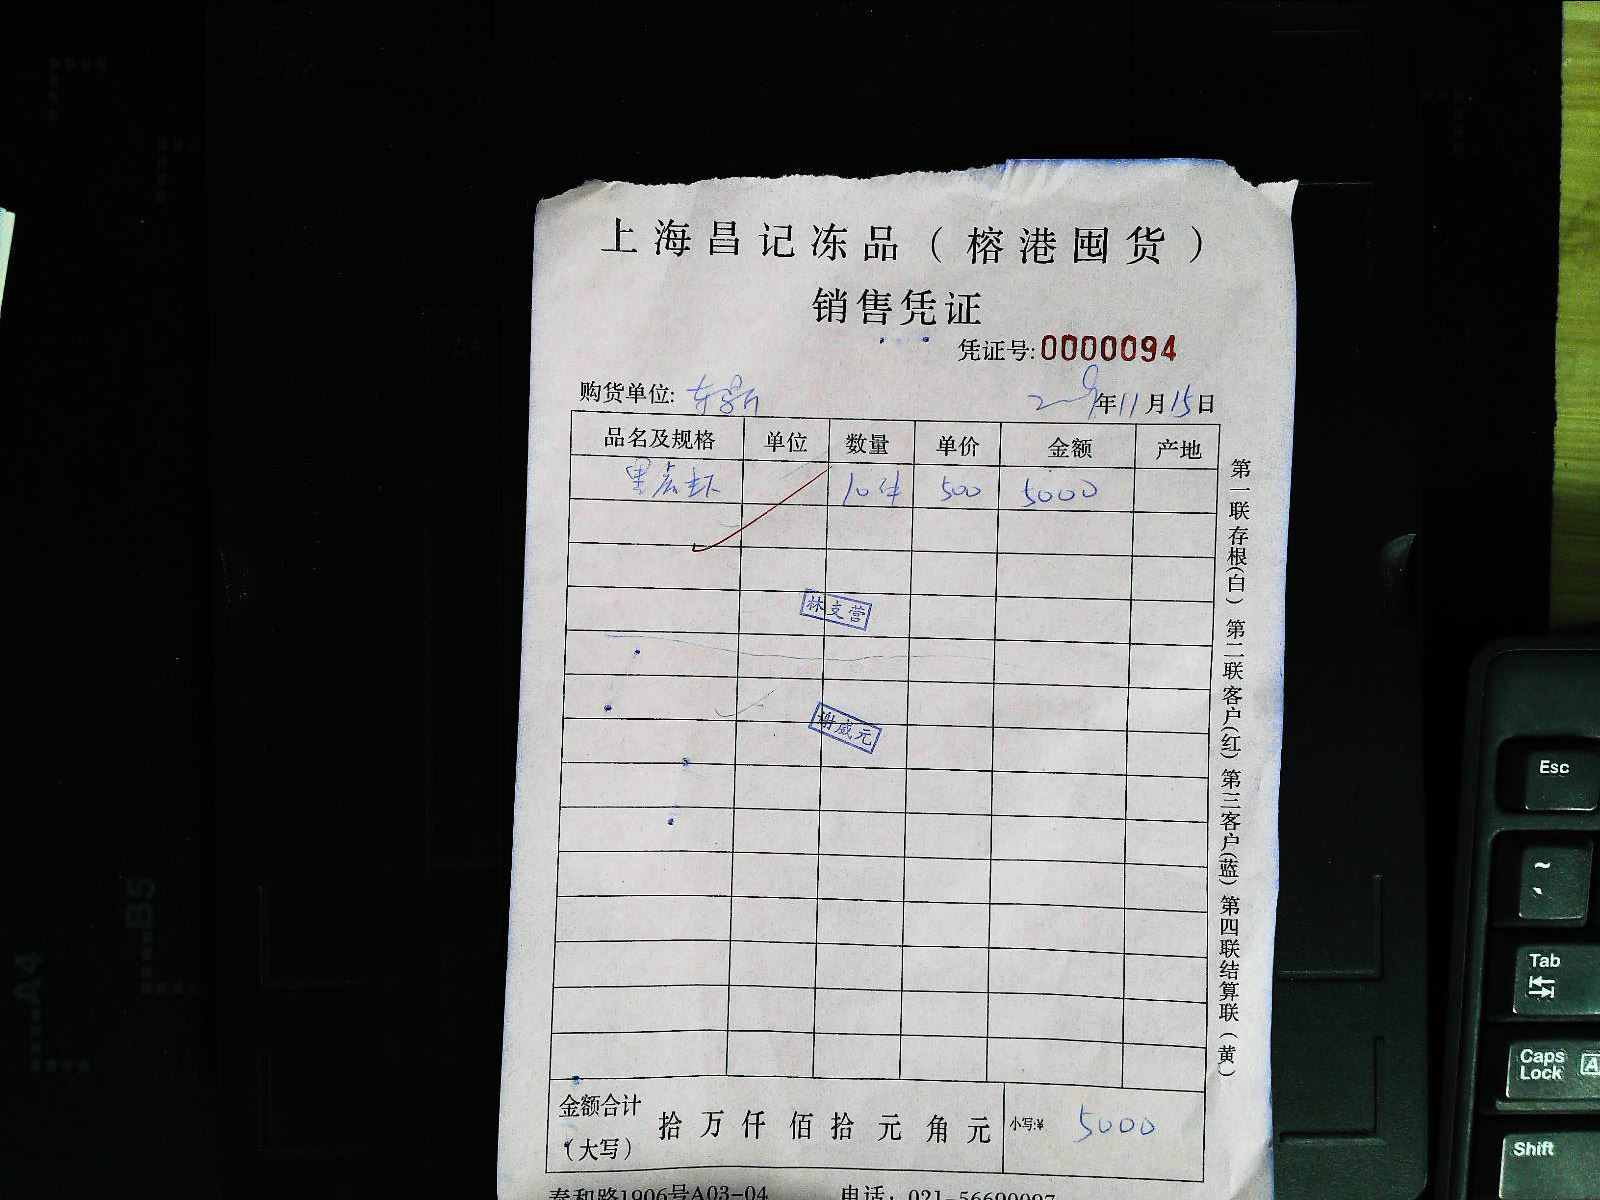 上海昌记冻品（榕港囤货）
销售凭证
凭证号:0000094
购货单位: 年11月15日
品名及规格 单位 数量 单价 金额 产地
黑虎虾 10件 500 5000
林支营
谢威元
金额合计（大写） 拾万仟佰拾元角元 小写:¥ 5000
泰和路1906号A03-04 电话：021-56690097
第一联存根(白) 第二联客户(红) 第三客户(蓝) 第四联结算联(黄)
A4
B5
Esc
~
Tab
Caps Lock
A
Shift